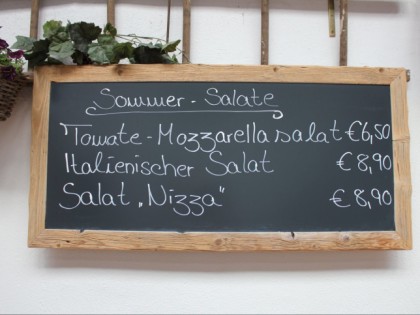 Sommer - Salate
Tomate - Mozzarella salat €6,50
Italienischer Salat € 8,90
Salat „Nizza“ € 8,90